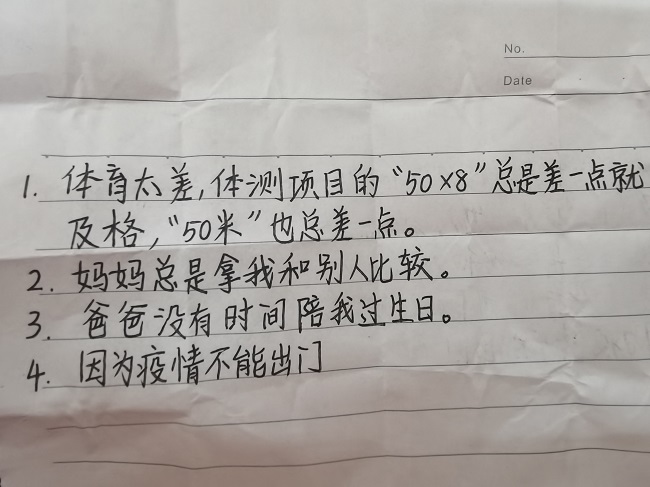 No.
Date
1. 体育太差,体测项目的“50×8”总是差一点就
及格,“50米”也总差一点。
2. 妈妈总是拿我和别人比较。
3. 爸爸没有时间陪我过生日。
4. 因为疫情不能出门